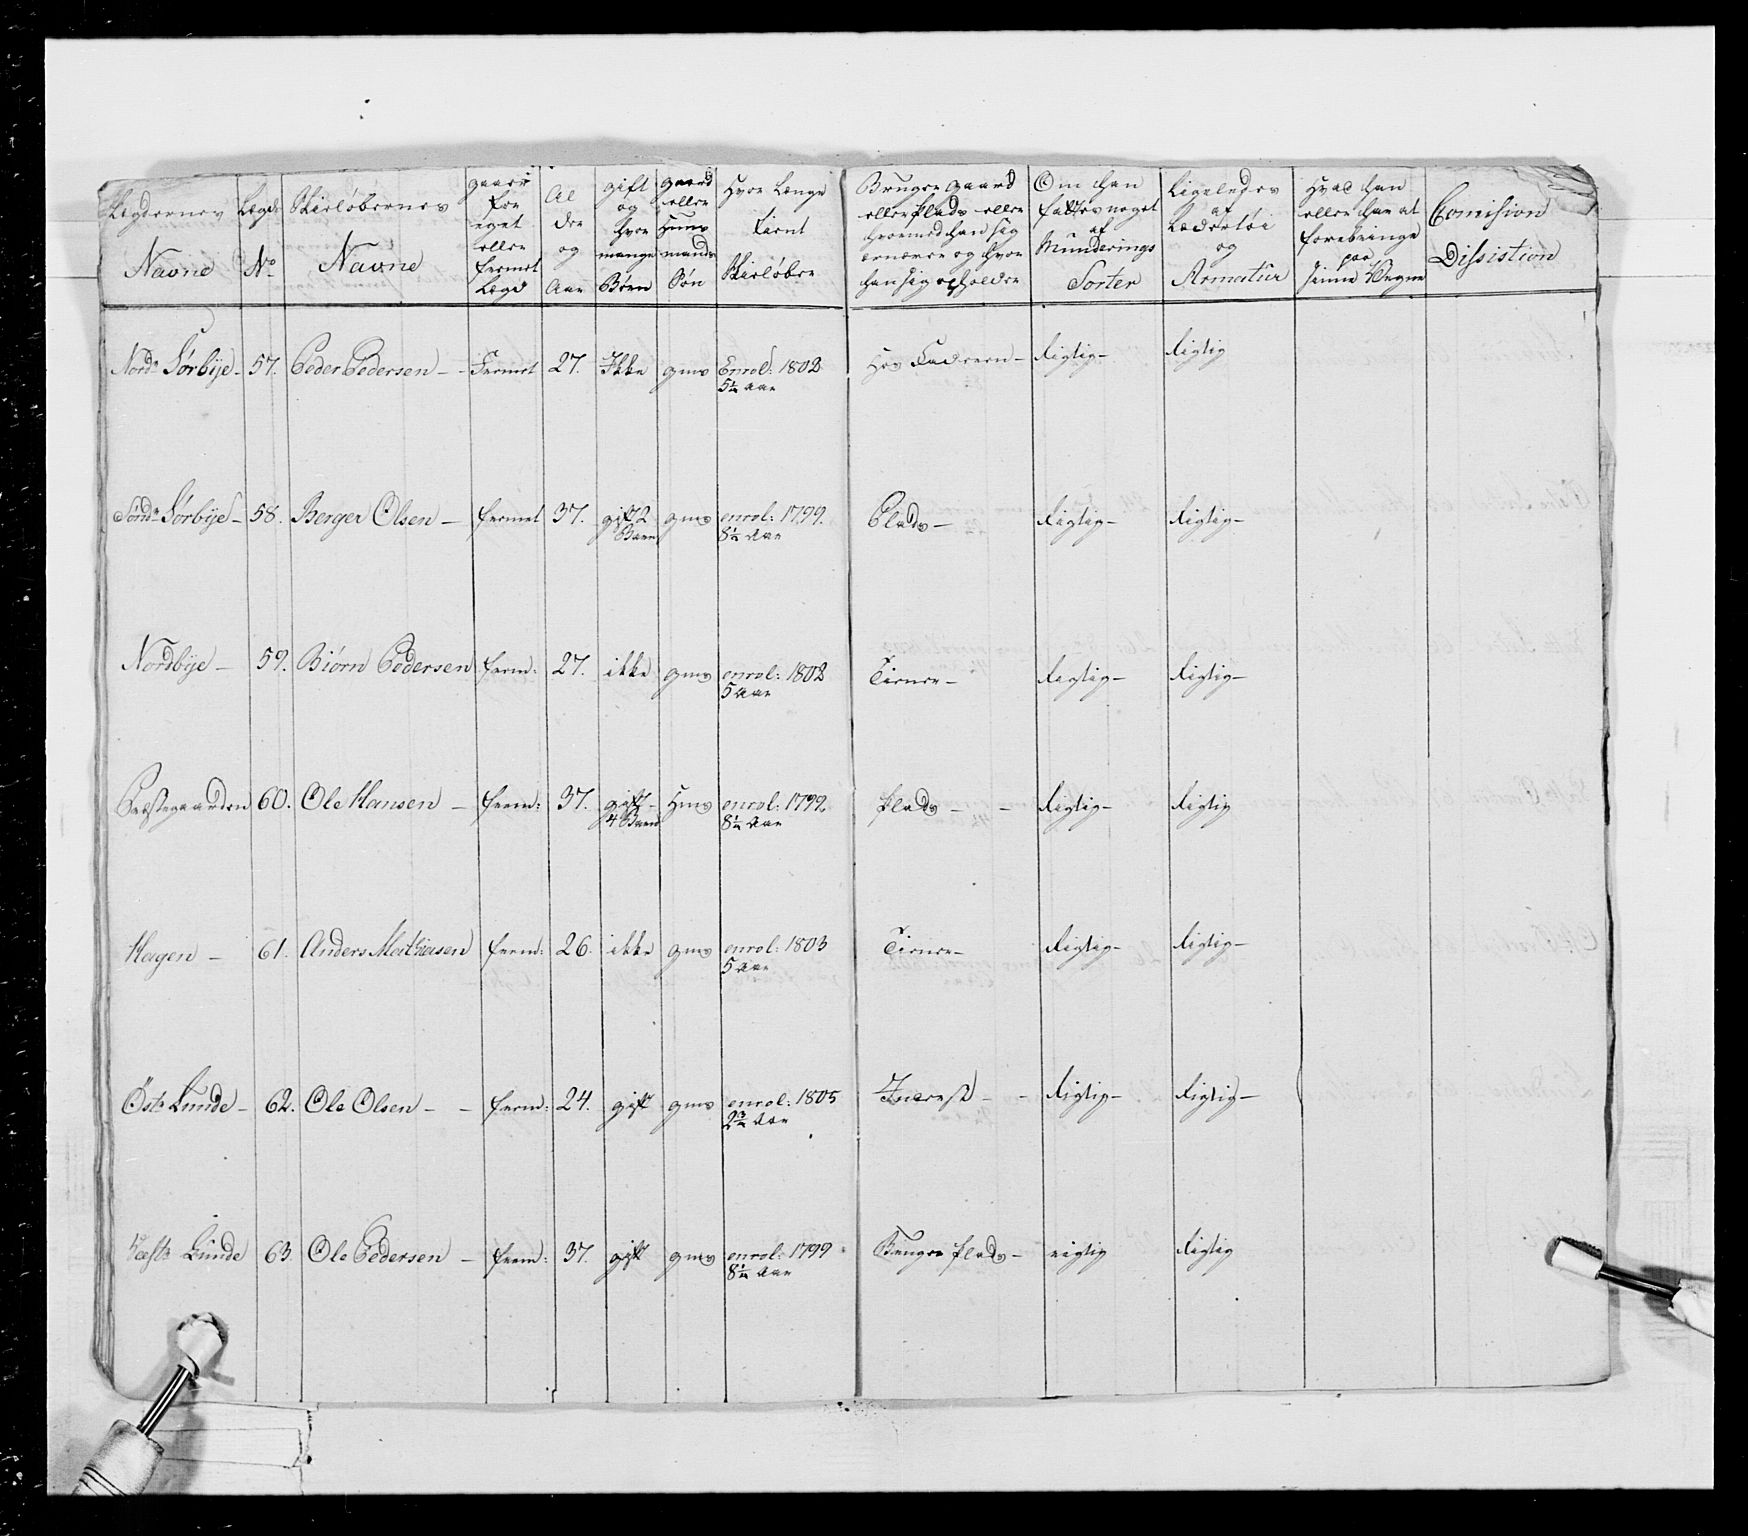 Legdernes Navne | Legds No | Skieløbernes Navne | gaaer for eget eller fermet Legd | Al der og Aar | gift og hvor mange Børn | gaard eller Huus mands Søn | Hvor Længe tient Skieløber | Bruger gaard eller Plads eller hvormed han sig ernærer og hvor han sig opholder | Om han fattes noget af Munderings Sorter | Ligeledes af Lædertøi og Armatur | Hvad han eller har at forebringe paa sinne Vegne | Comission Dissistion
Nordre Sørbÿe | 57. | Peder Pedersen | Fermet | 27. | Ikke | gms | Enrol: 1802 5¼ Aar | Hos Faderen | Rigtig | Rigtig
Søndr Sørbÿe | 58. | Berger Olsen | fermet | 37. | gift 2 Børn | gms | enrol: 1799. 8¼ Aar | Plads | Rigtig | Rigtig
Nordbÿe | 59. | Biørn Pedersen | ferm: | 27. | ikke | gms | enrol: 1802 5 Aar | Tiener | Rigtig | Rigtig
Præstegaarden | 60. | Ole Hansen | ferm: | 37. | gift 4 Børn | Hms | enrol: 1799. 8¼ Aar | Plads | Rigtig | Rigtig
Hagen | 61. | Anders Mathiesen | ferm: | 26. | ikke | gms | enrol: 1803 5 Aar | Tiener | Rigtig | Rigtig
Østr Lunde | 62. | Ole Olsen | ferm: | 24. | gift | gms | enrol: 1805 2¾ Aar | Inderst | Rigtig | Rigtig
Væstr Lunde | 63. | Ole Pedersen | ferm: | 37. | gift | gms | enrol: 1799 8¼ Aar | Bruger Plads | rigtig | Rigtig